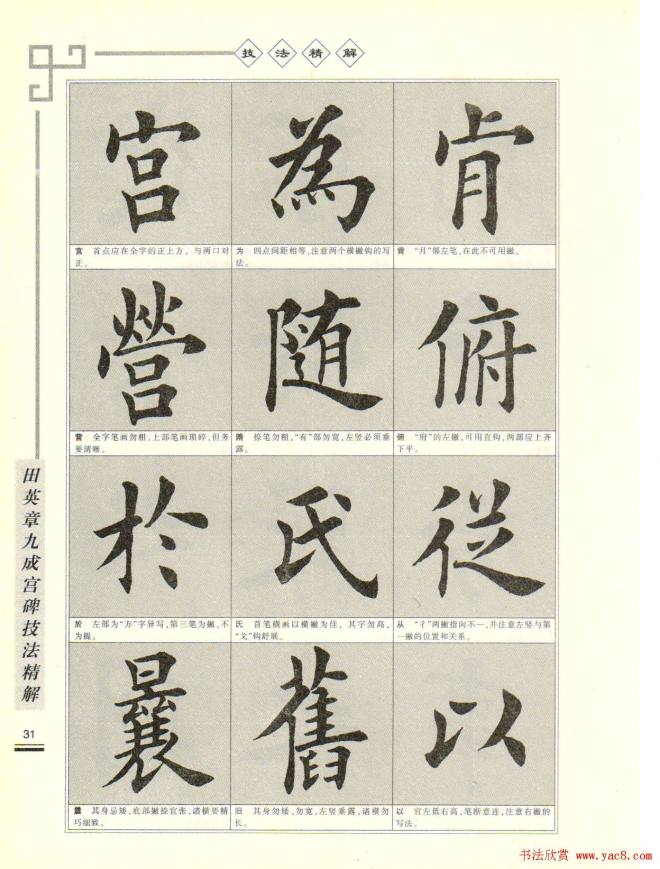 技法精解
宫 為 肯
宫 首点应在全字的正上方，与两口对
正。
为 四点间距相等，注意两个横撇钩的写
法。
肯 “月”部左笔，在此不可用撇。
營 随 俯
营 全字笔画勿粗，上部笔画琐碎，但务
要清晰。
隋 捺笔勿粗，“有”部勿宽，左竖必须垂
露。
俯 “府”的左撇，可用直钩，两部应上齐
下平。
於 氏 從
於 左部为“方”字异写，第三笔为撇，不
为提。
氏 首笔横画以横撇为佳，其字勿高，
“戈”钩舒展。
从 “彳”两撇指向不一，并注意左竖与第
一撇的位置和关系。
曩 舊 以
曩 其身忌矮，底部撇捺宜张，诸横要精
巧细致。
旧 其身勿矮，勿宽，左竖垂露，诸横勿
长。
以 宜左低右高，笔断意连，注意右撇的
写法。
田英章九成宫碑技法精解
31
书法欣赏 www.yac8.com